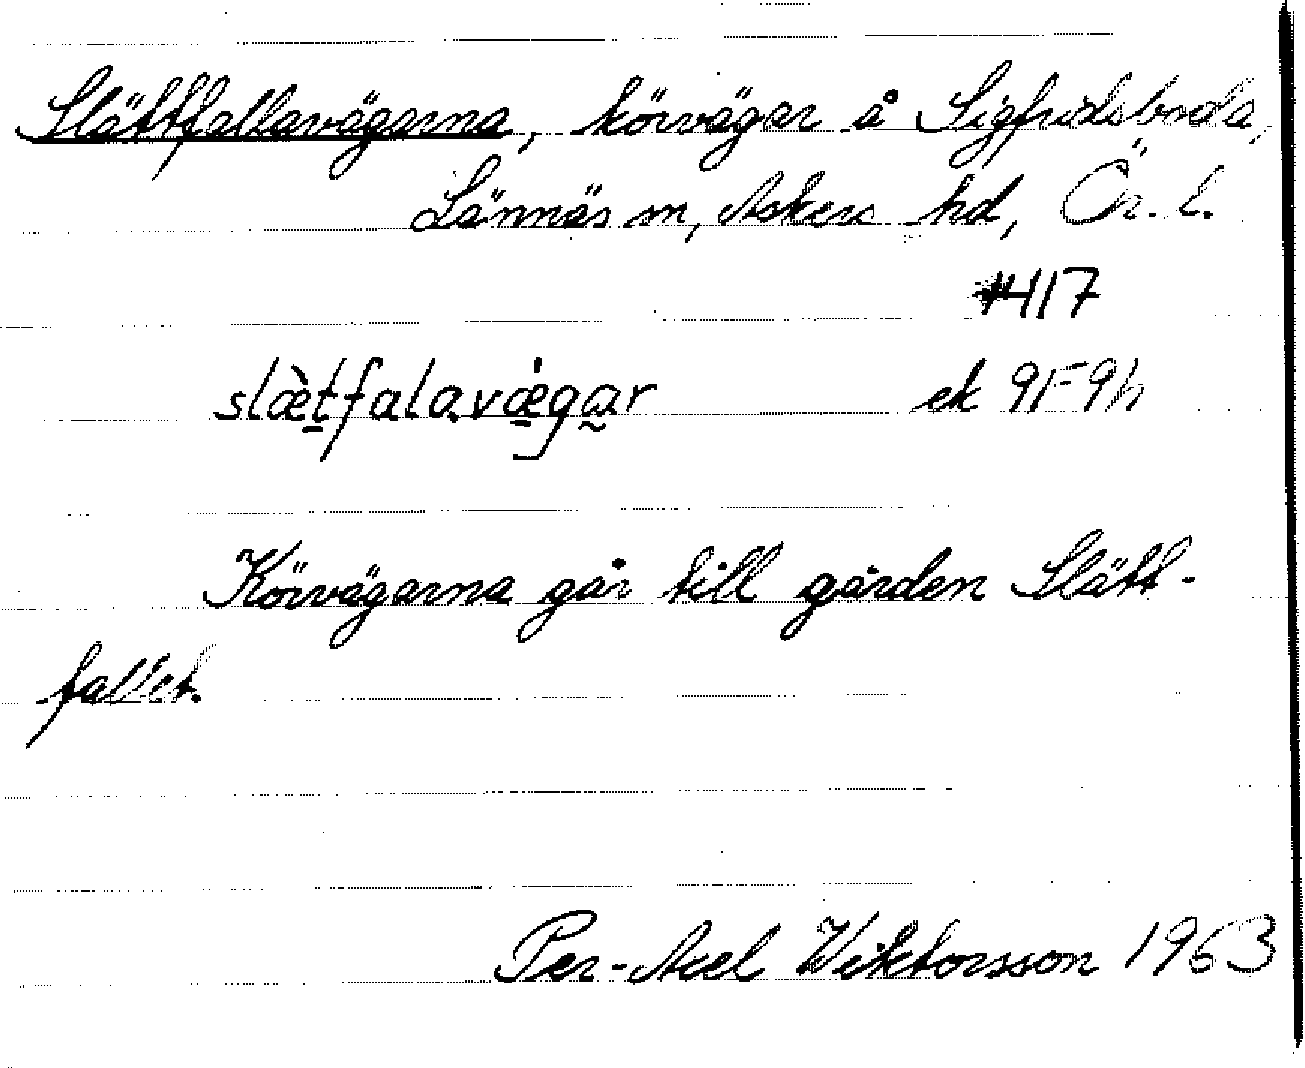 Slättfallavägarna, körvägar å Sigfridsboda,
Lännäs sn, Askers hd, Ör. l.
417
slæ̀tfalavǽgar ek 9F9h
Körvägarna går till gården Slätt-
fallet.
Per-Axel Wiktorsson 1963